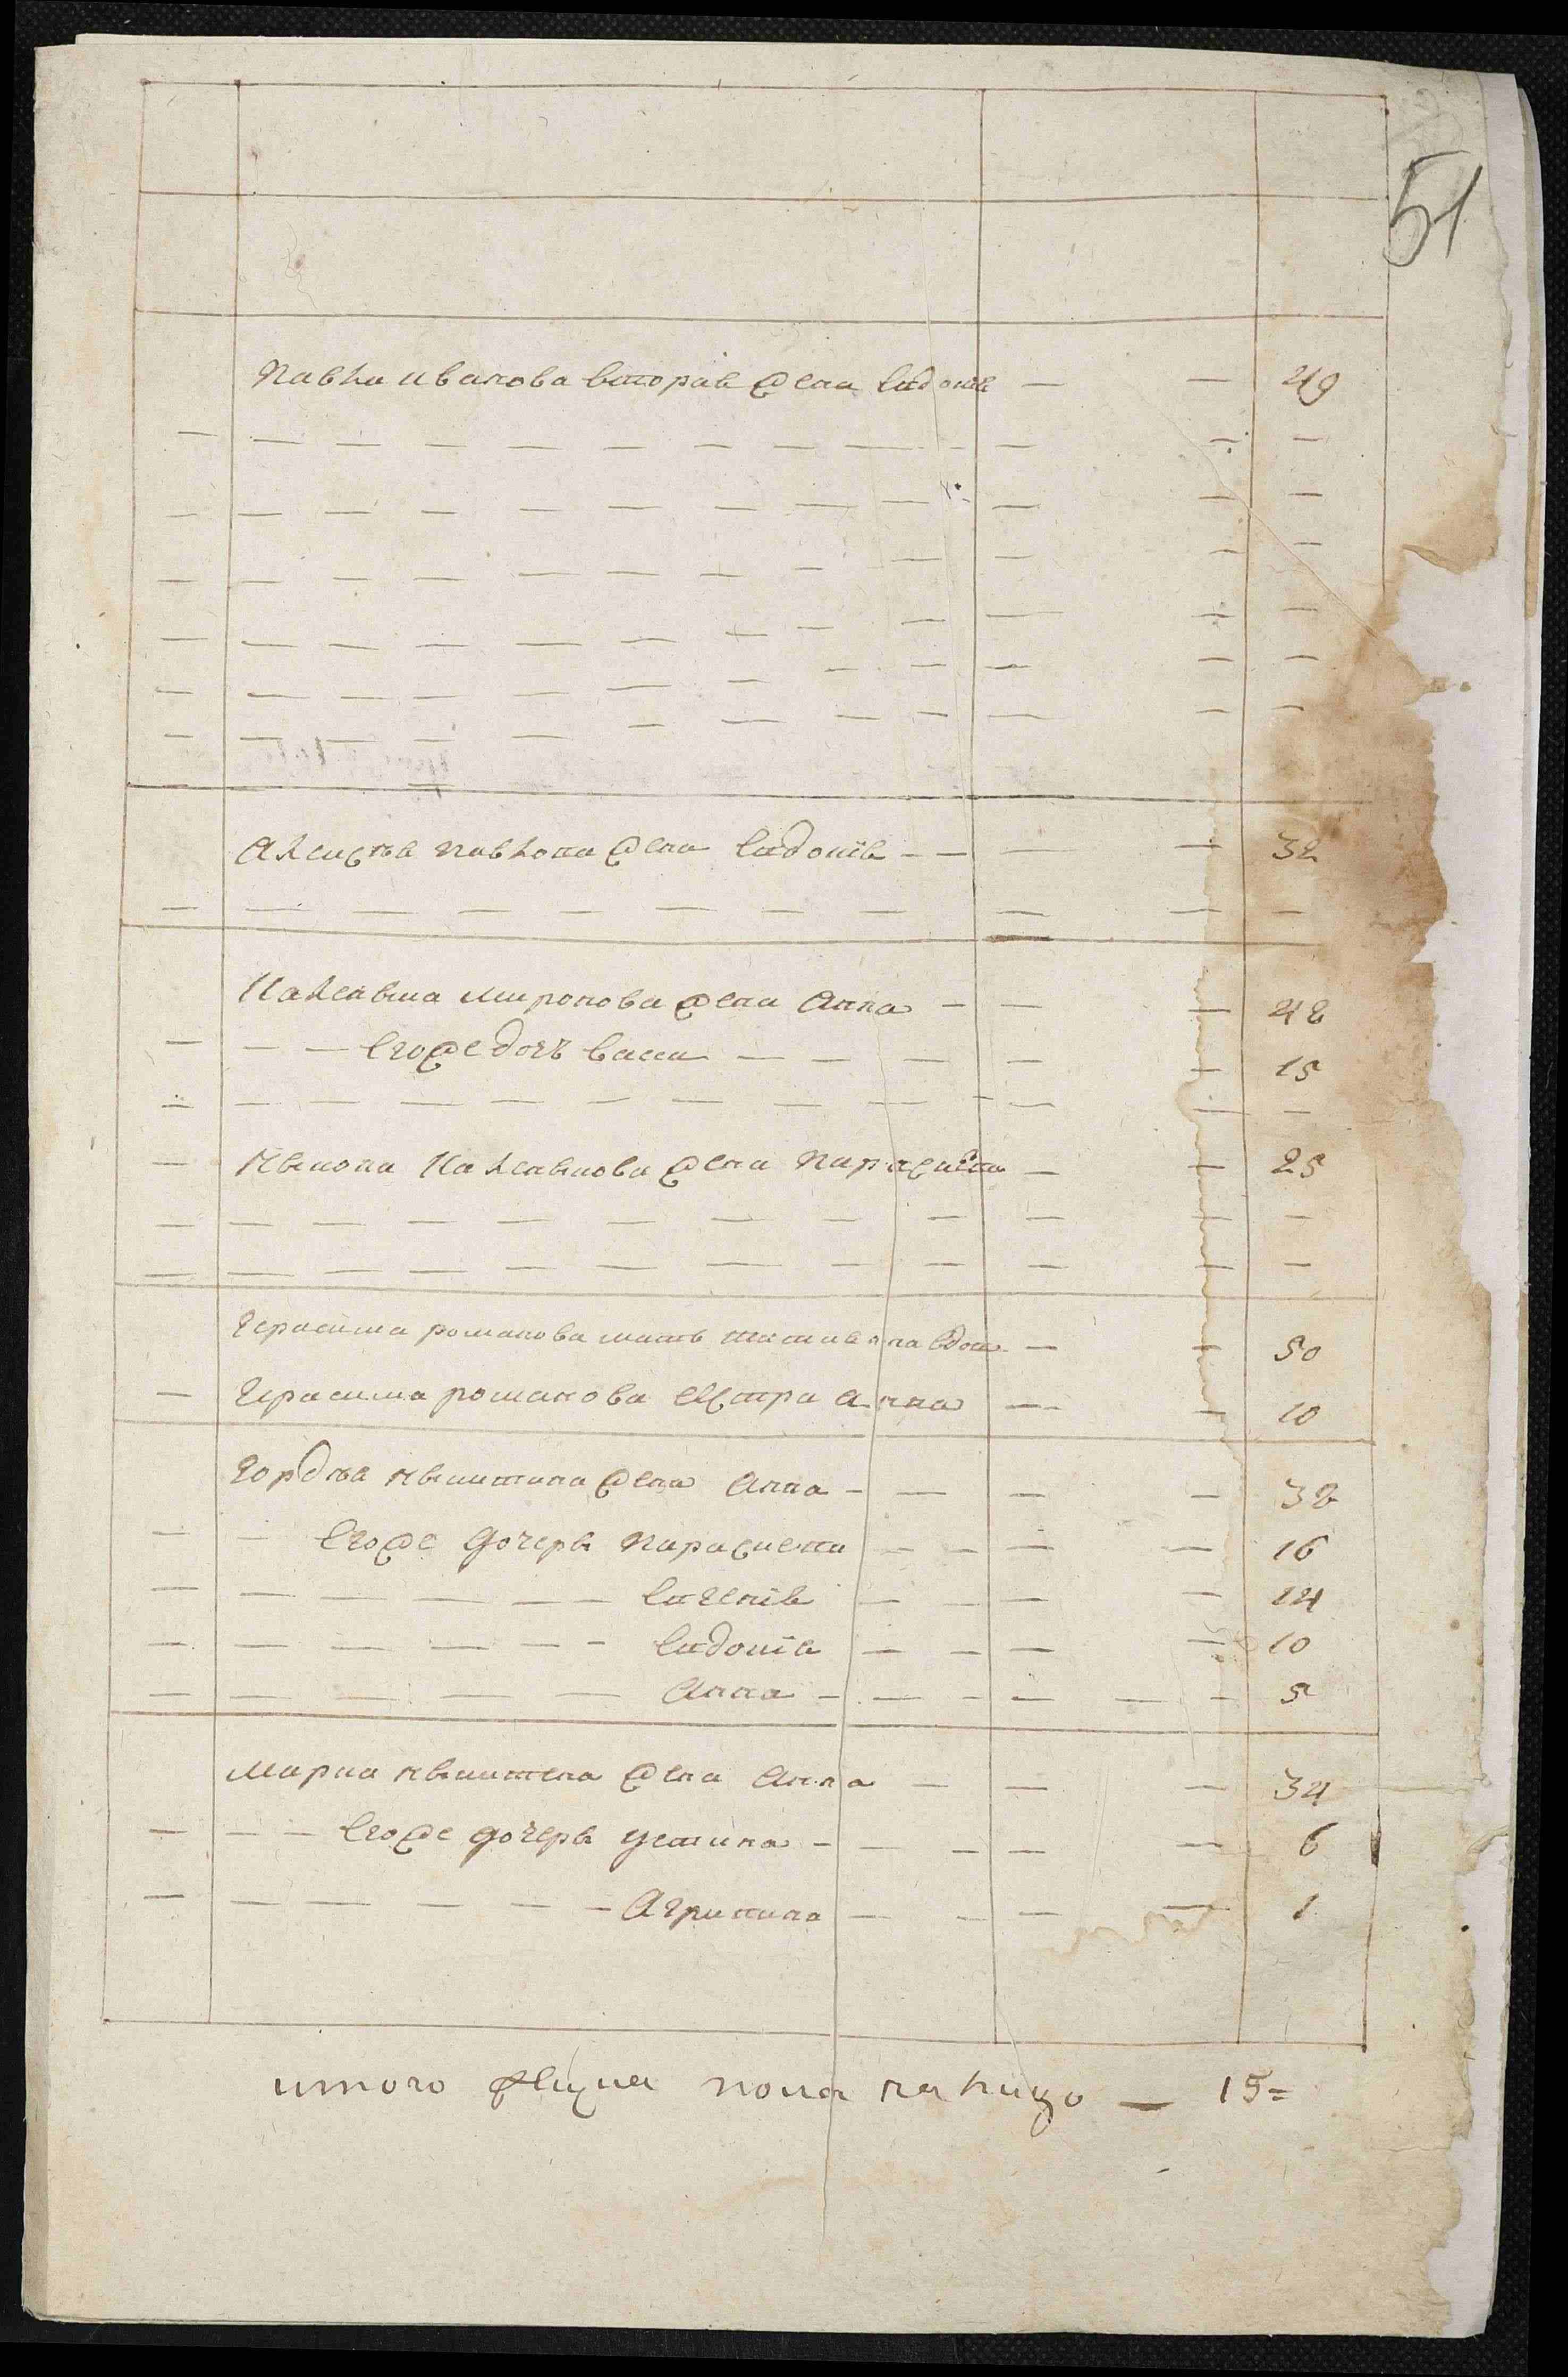 51
Павла Иванова вторая жена Евдокия — — 49
Алексея Павлова жена Евдокия — — 32
Миронова жена Анна — — 42
Егоже дочь Васса — — 15
жена Параскева — — 25
Герасима Романова мать Татиана вдова — — 50
Герасима Романова сестра Анна — — 10
Гордея Никитина жена Анна — — 32
Егоже дочери Параскева — — 16
Евгения — — 14
Евдокия — — 10
Анна — — 5
Марка Никитина жена Анна — — 34
Егоже дочери Устина — — 6
Агрипина — — 1
итого женска пола на лицо — 15=